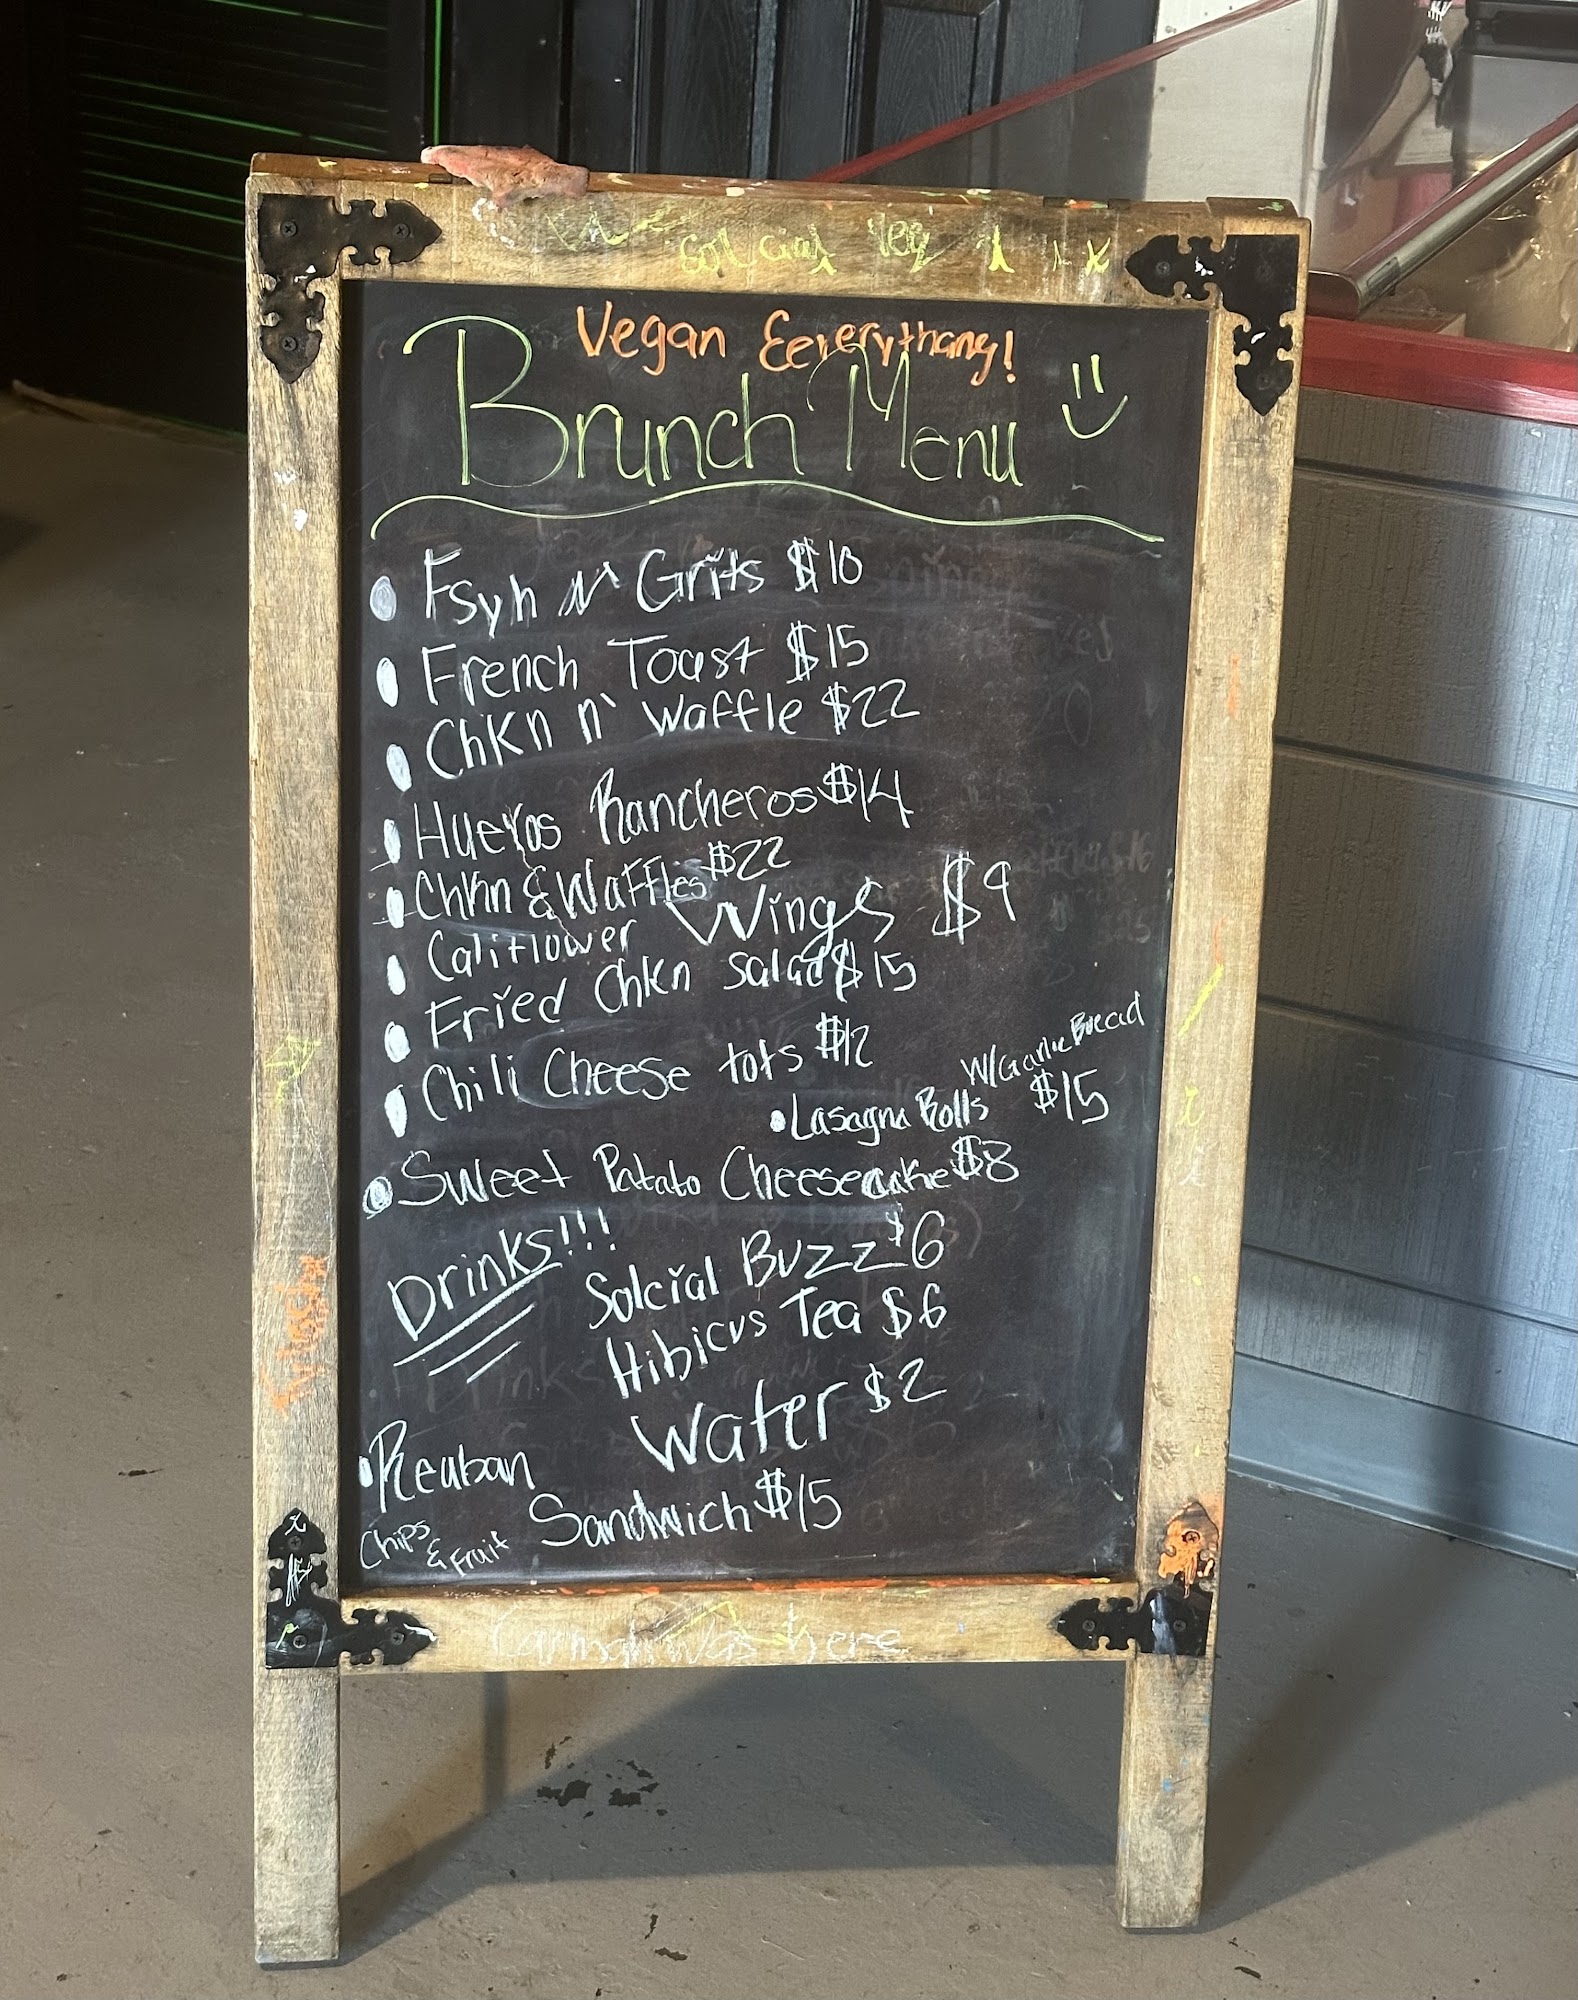 Vegan Eeverythang!
Brunch Menu
Fsyh n' Grits $10
French Toast $15
ChKn n' Waffle $22
Huevos Rancheros $14
Chkn & Waffles $22
Califlower Wings $9
Fried ChKn Salad $15
Chili Cheese tots $12
W/Garlic Bread
Lasagna Rolls $15
Sweet Patato Cheesecake $8
Drinks!!!
Solcial Buzz $6
Hibicus Tea $6
Water $2
Reuban
Sandwich $15
Chips
& Fruit
was here